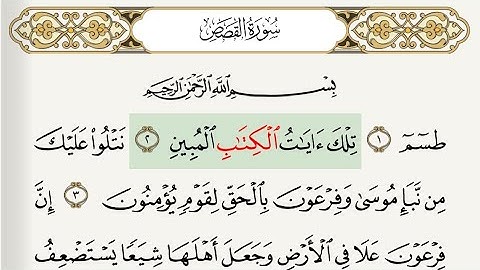 سُورَةُ القَصَصِ
بِسْمِ اللَّهِ الرَّحْمَٰنِ الرَّحِيمِ
طسٓمٓ ١ تِلْكَ ءَايَٰتُ ٱلْكِتَٰبِ ٱلْمُبِينِ ٢ نَتْلُوا۟ عَلَيْكَ
مِن نَّبَإِ مُوسَىٰ وَفِرْعَوْنَ بِٱلْحَقِّ لِقَوْمٍ يُؤْمِنُونَ ٣ إِنَّ
فِرْعَوْنَ عَلَا فِى ٱلْأَرْضِ وَجَعَلَ أَهْلَهَا شِيَعًا يَسْتَضْعِفُ